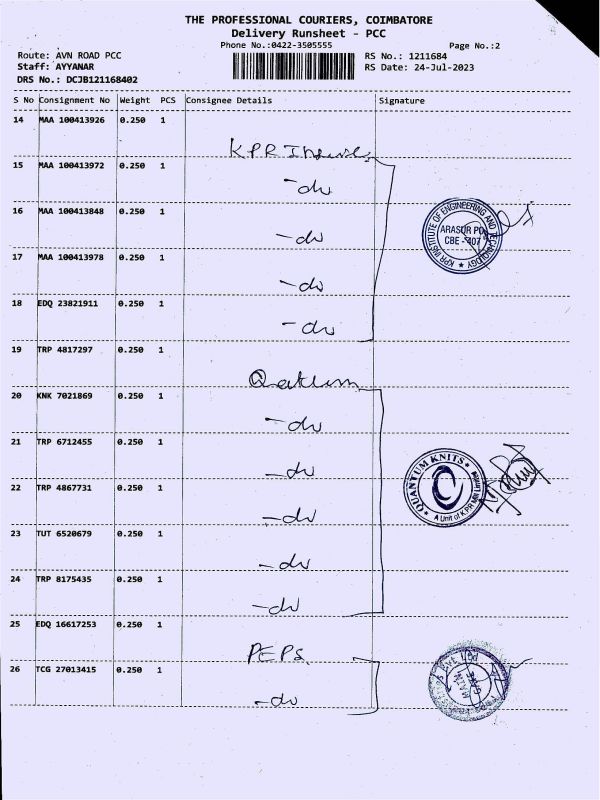 THE PROFESSIONAL COURIERS, COIMBATORE
Delivery Runsheet - PCC
Phone No.:0422-3505555
Page No.:2
Route: AVN ROAD PCC
RS No.: 1211684
Staff: AYYANAR
RS Date: 24-Jul-2023
DRS No.: DCJB121168402
S No Consignment No Weight PCS Consignee Details Signature
14 MAA 100413926 0.250 1
KPR
15 MAA 100413972 0.250 1
- do
16 MAA 100413848 0.250 1
- do
KPR INSTITUTE OF ENGINEERING AND TECHNOLOGY
ARASUR PO
CBE - 407
17 MAA 100413978 0.250 1
- do
18 EDQ 23821911 0.250 1
- do
19 TRP 4817297 0.250 1
20 KNK 7021869 0.250 1
- do
21 TRP 6712455 0.250 1
- do
QUANTUM KNITS
A Unit of K.P.R Mill Limited
22 TRP 4867731 0.250 1
- do
23 TUT 6520679 0.250 1
- do
24 TRP 8175435 0.250 1
- do
25 EDQ 16617253 0.250 1
PEPS
26 TCG 27013415 0.250 1
- do
MAIN
GATE